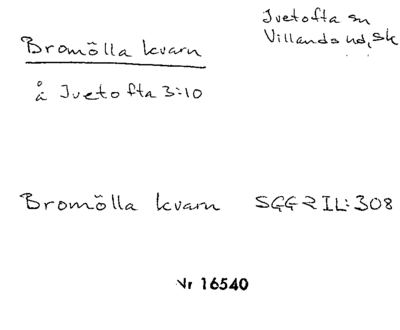 Ivetofta sn
Villands hd, Sk
Bromölla kvarn
å Ivetofta 3:10
Bromölla kvarn SGG RIL:308
Nr 16540